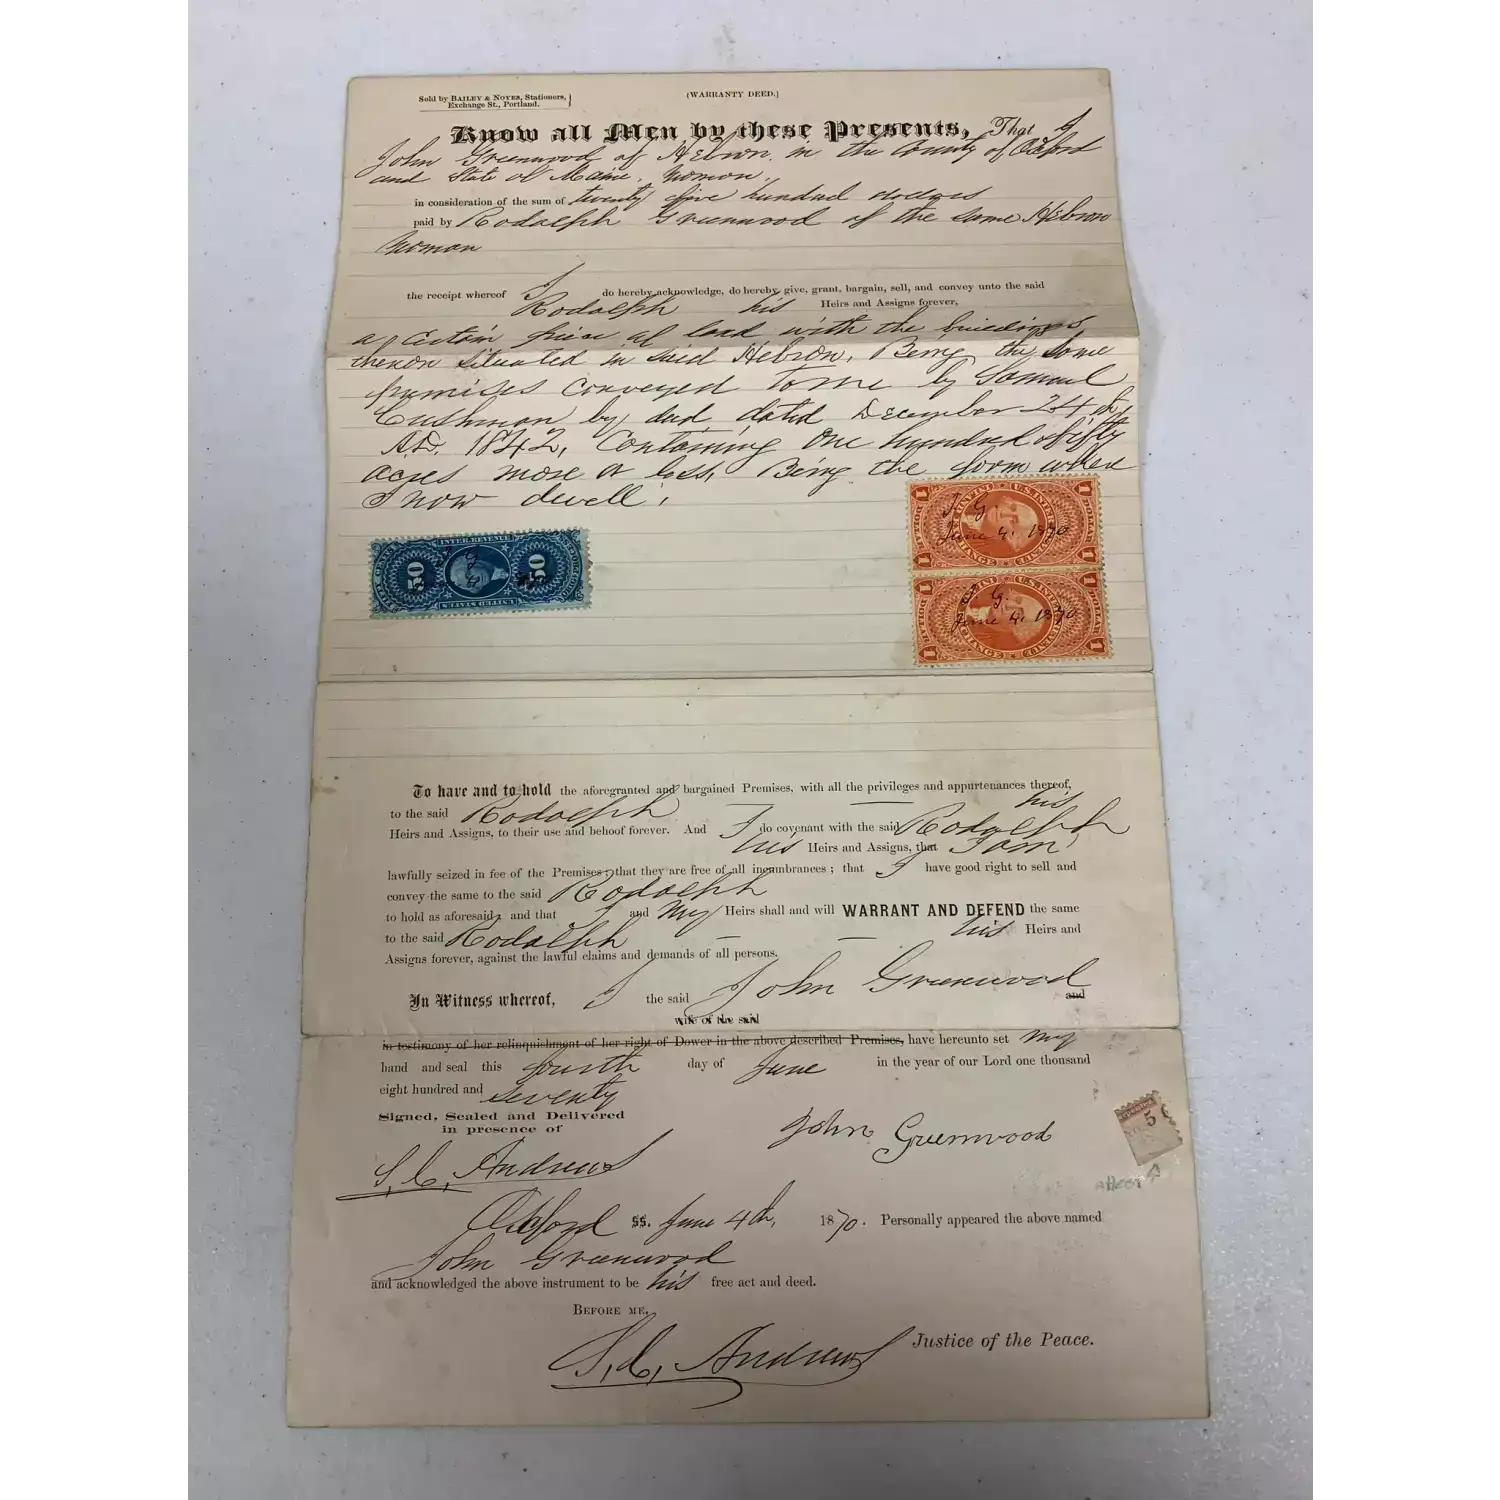 Sold by BAILEY & NOYES, Stationers,
Exchange St., Portland.
(WARRANTY DEED.)
Know all Men by these Presents, That I
John Greenwood of Hebron in the County of Oxford
and State of Maine, yeoman.
in consideration of the sum of twenty five hundred dollars
paid by Rodolph Greenwood of the same Hebron
yeoman
the receipt whereof I do hereby acknowledge, do hereby give, grant, bargain, sell, and convey unto the said
Rodolph his Heirs and Assigns forever,
a certain piece of land with the buildings
thereon situated in said Hebron, Being the same
premises conveyed to me by Samuel
Cushman by deed dated December 24th,
A.D. 1842, Containing One hundred & fifty
acres more or less, Being the farm where
I now dwell.
INTER. REVENUE
50 50
UNITED STATES
J. G.
June 4. 1870
1 U.S. INTER. REVENUE 1
J. G.
June 4. 1870
1 1
1 U.S. INTER. REVENUE 1
G.
June 4. 1870
1 1
To have and to hold the aforegranted and bargained Premises, with all the privileges and appurtenances thereof,
to the said Rodolph his
Heirs and Assigns, to their use and behoof forever. And I do covenant with the said Rodolph
his Heirs and Assigns, that I am
lawfully seized in fee of the Premises; that they are free of all incumbrances; that I have good right to sell and
convey the same to the said Rodolph
to hold as aforesaid; and that I and my Heirs shall and will WARRANT AND DEFEND the same
to the said Rodolph his Heirs and
Assigns forever, against the lawful claims and demands of all persons.
In Witness whereof, I the said John Greenwood and
wife of the said
in testimony of her relinquishment of her right of Dower in the above described Premises, have hereunto set my
hand and seal this fourth day of June in the year of our Lord one thousand
eight hundred and seventy
Signed, Sealed and Delivered
in presence of
John Greenwood
5
S. C. Andrews
Oxford ss. June 4th, 1870. Personally appeared the above named
John Greenwood
and acknowledged the above instrument to be his free act and deed.
BEFORE ME,
S. C. Andrews Justice of the Peace.